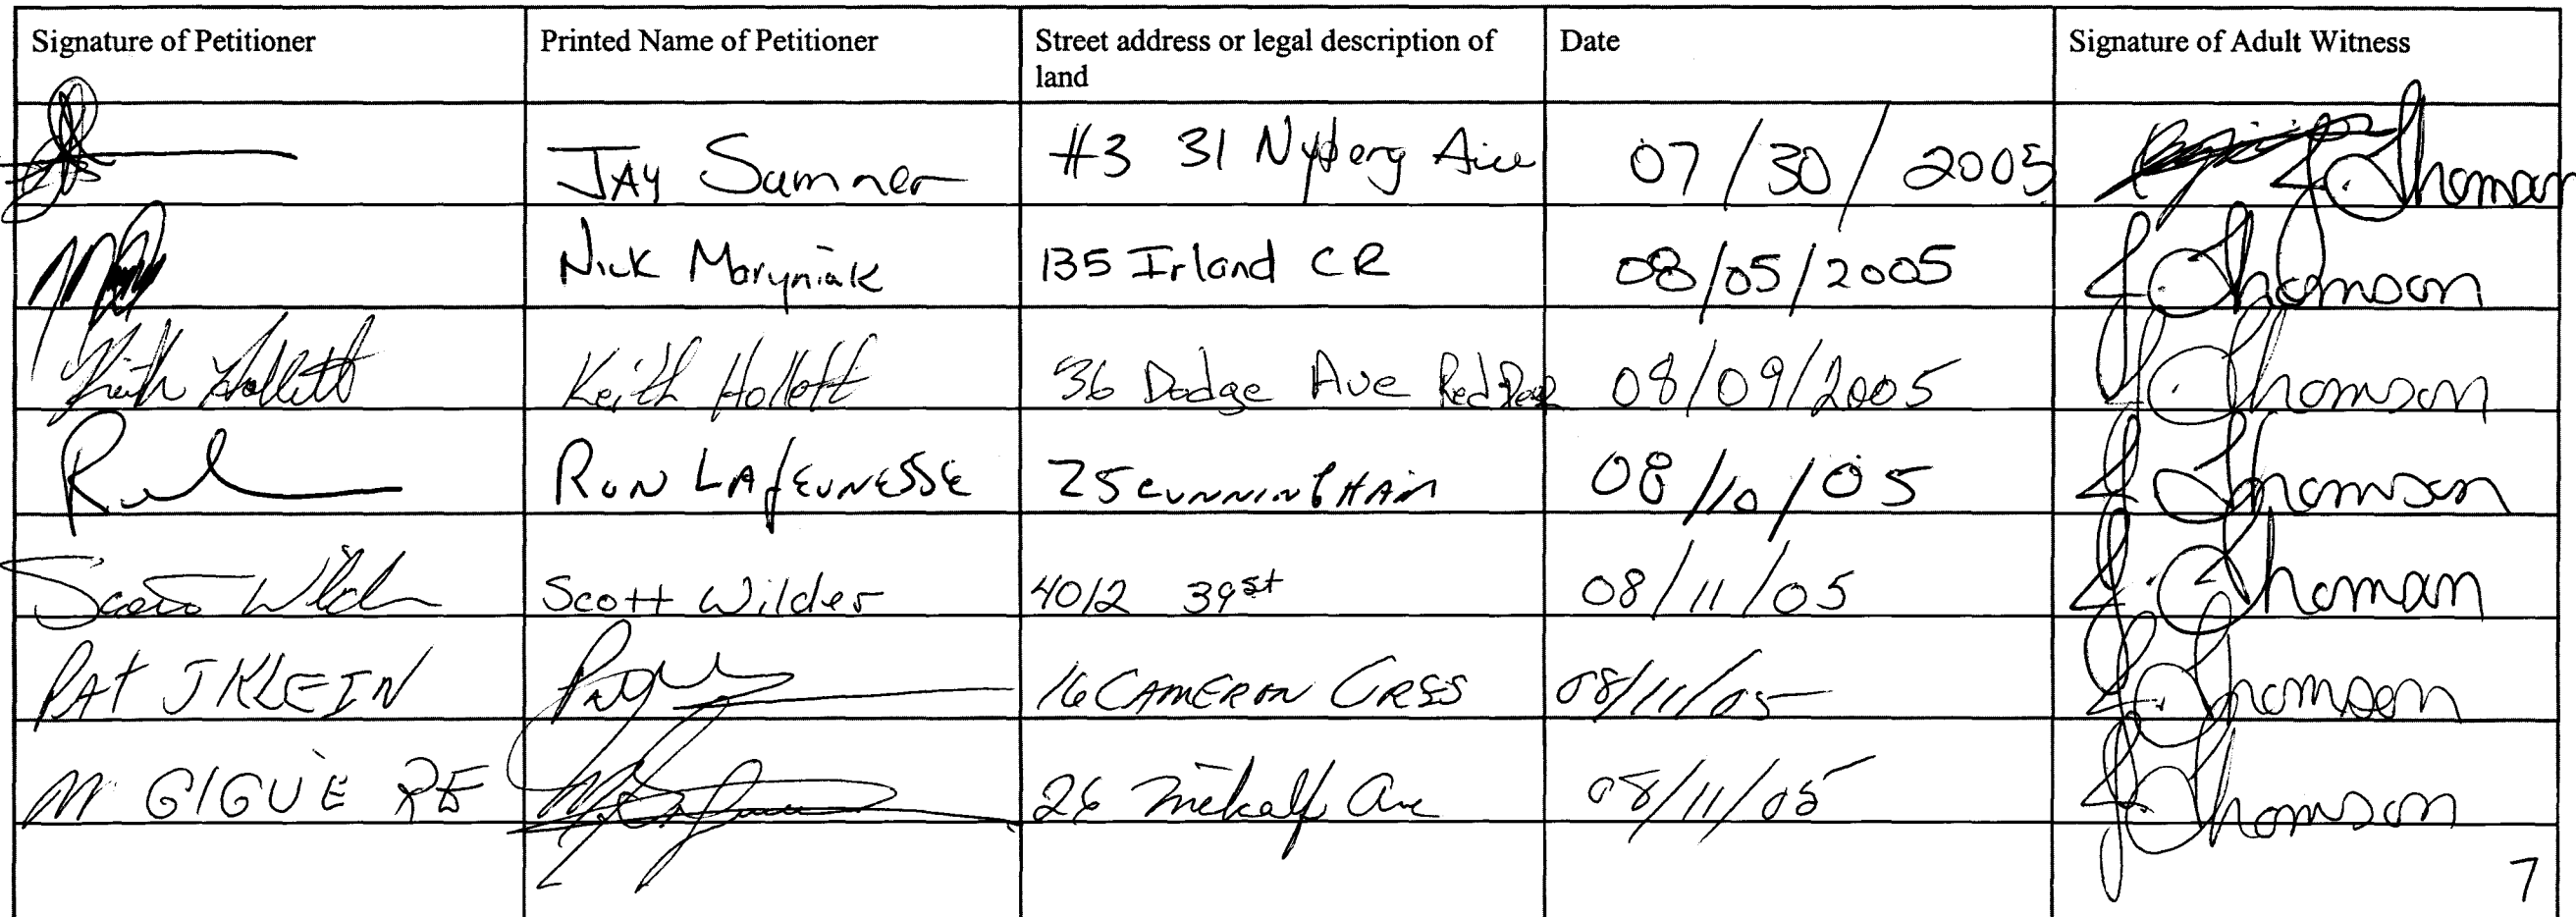 Signature of Petitioner Printed Name of Petitioner Street address or legal description of land Date Signature of Adult Witness
JAY Sumner #3 31 Nyberg Ave 07/30/2005 J. Thomson
Nick Moryniak 135 Irland CR 08/05/2005 J. Thomson
Keith Hollett Keith Hollett 36 Dodge Ave Red Deer 08/09/2005 J. Thomson
RON LAJEUNESSE 25 CUNNINGHAM 08/10/05 J. Thomson
Scott Wilder Scott Wilder 4012 39st 08/11/05 J. Thomson
PAT J KLEIN 16 CAMERON CRES 08/11/05 J. Thomson
M GIGUÈRE 26 Metcalf Ave 08/11/05 J. Thomson
7